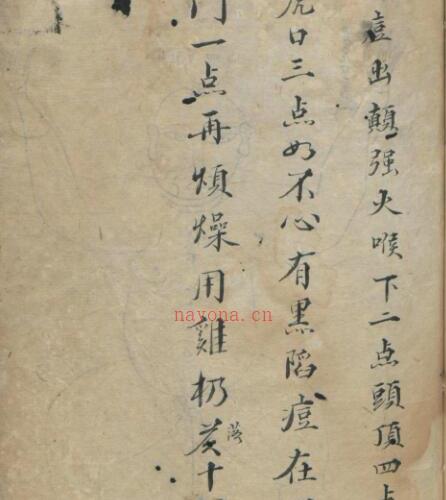 痘出顛强火喉下二点頭頂四点
虎口三点如不心有黑陷痘在
门一点再煩燥用雞扔落十
nayona.cn